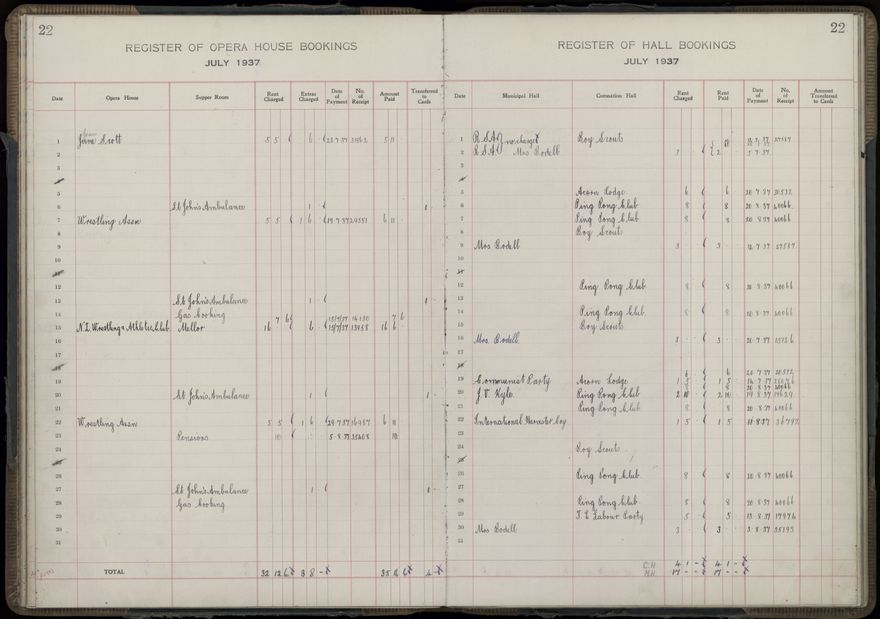 22
REGISTER OF OPERA HOUSE BOOKINGS
JULY 1937
Date Opera House Supper Room Rent Charged Extras Charged Date of Payment No. of Receipt Amount Paid Transferred to Cards
1 Scott 5 5 6 5 11
2
3
5
6 St John's Ambulance 1
7 Wrestling Assn 5 5 1 6 6 11
8
9
10
12
13 St John's Ambulance 1
14 Gas Cooking 7 6 7 6
15 N.Z. Wrestling & Athletic Club Mellor 16 6 16 6
16
17
19
20 St John's Ambulance 1
21
22 Wrestling Assn 5 5 1 6 29.7.37 6 11
23 Pensions 10 5.8.37 10
24
26
27 St John's Ambulance 1
28 Gas Cooking
29
30
31
TOTAL 32 12 6 3 8 - 35 16 6 4
22
REGISTER OF HALL BOOKINGS
JULY 1937
Date Municipal Hall Coronation Hall Rent Charged Rent Paid Date of Payment No. of Receipt Amount Transferred to Cards
1 R.S.A. no charge Boy Scouts
2 R.S.A. Mrs Bodell 3
3
5 Acorn Lodge 6 6 20.7.37 20532
6 Ping Pong Club 8 8 20.8.37 40066
7 Ping Pong Club 8 8 20.8.37 40066
8 Boy Scouts
9 Mrs Bodell 3 3 12.7.37
10
12 Ping Pong Club 8 8 20.8.37 40066
13
14 Ping Pong Club 8 8 20.8.37 40066
15 Boy Scouts
16 Mrs. Bodell 3 3 20.7.37
17
6 6 20.7.37 20532
19 Communist Party Acorn Lodge 1 5 1 5 14.7.37
8 8 20.8.37 40066
20 J.V. Kyle Ping Pong Club 2 10 2 10 19.8.37
21 Ping Pong Club 8 8 20.8.37 40066
22 International Harvester Coy 1 5 1 5 11.8.37
23
24 Boy Scouts
26 Ping Pong Club 8 8 20.8.37 40066
27
28 Ping Pong Club 8 8 20.8.37 40066
29 Labour Party 5 5 13.8.37
30 Mrs Bodell 3 3 3.8.37
31
C.H. 4 1 - 4 1 -
M.H. 17 - - 17 - -